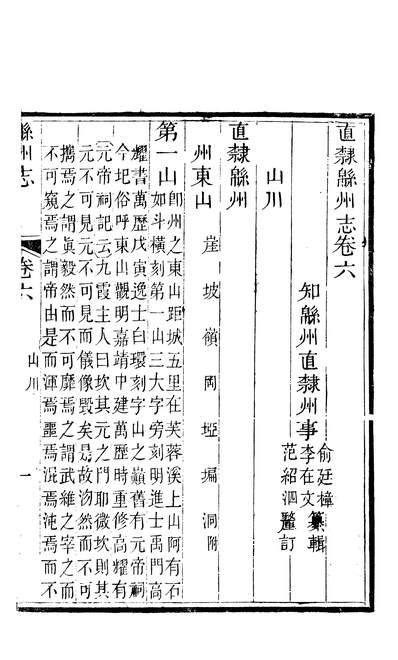 直隸緜州志卷六
知緜州直隸州事
俞廷樟
李在文纂輯
范紹泗釐訂
山川
直隸緜州
州東山 崖 坡 嶺 岡 埡 堖 洞附
第一山
卽州之東山距城五里在芙蓉溪上山阿有石
如斗橫刻第一山三大字旁刻明進士禹門高
耀書萬歷戊寅逸士白環刻字山之巔舊有元帝祠
今圯俗呼東山觀明嘉靖中建萬歷時重修高耀有
元帝祠記云九霞主人曰坎其元之門耶微坎則其
元不可見元不可見而儀像毀矣是故沕然而不可
擕焉之謂眞毅然而不可靡焉之謂武維之宰之而
不可窺焉之謂帝由是而渾焉噩焉混焉沌焉而不
緜州志
卷六
山川
一